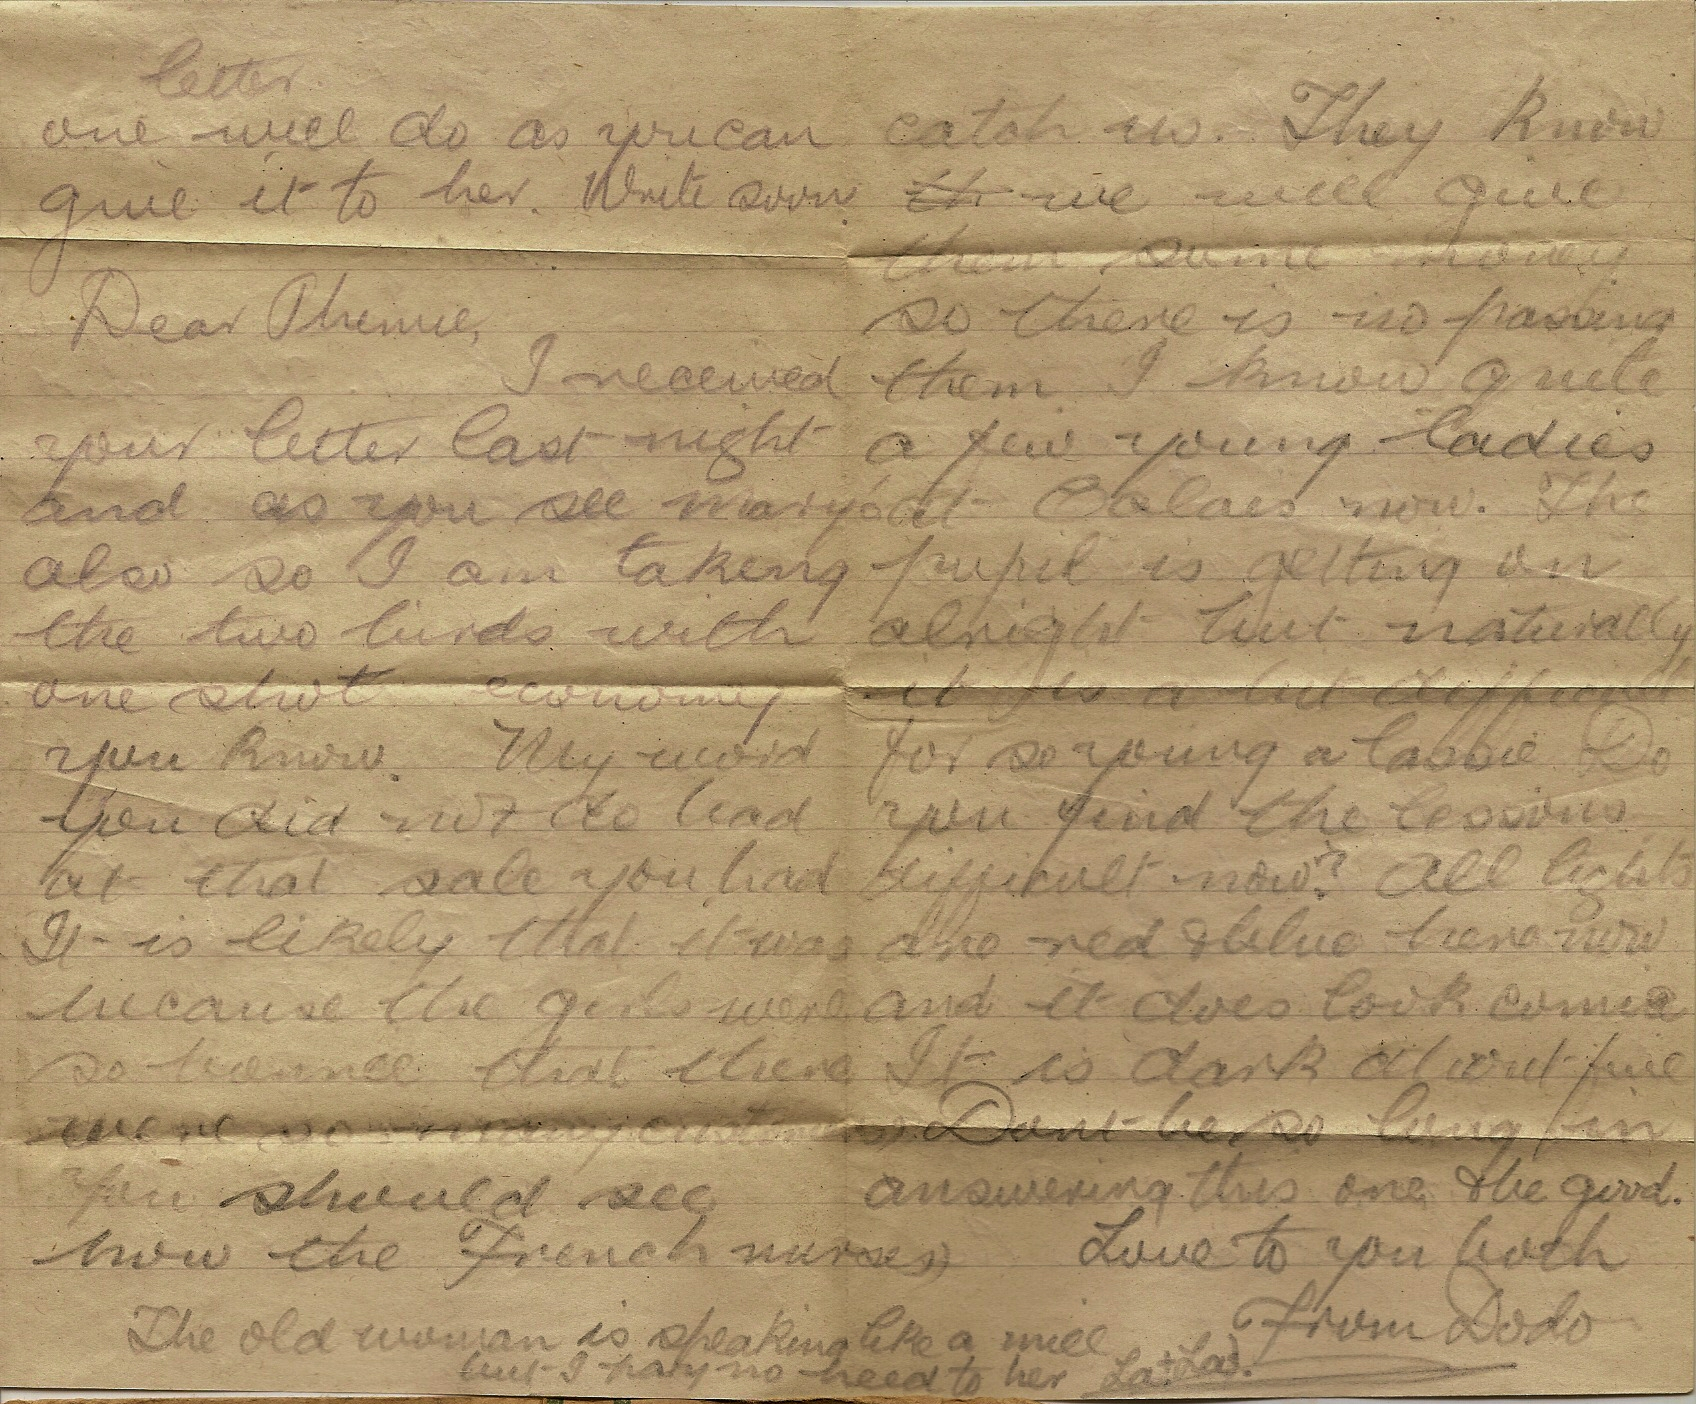 letter
one will do as you can
give it to her. Write soon
Dear Phemie,
I received
your letter last night
and as you see mary's
also so I am taking
the two birds with
one shot economy
you know. My word
you did not do bad
at that sale you had
It is likely that it was
because the girls were
so bonnee that there
were so many customers.
You should see
how the French nurses
catch us. They know
th we will give
them some money
so there is no passing
them I know quite
a few young ladies
at Calais now. The
pupil is getting on
alright but naturally
it is a bit difficult
for so young a lassie Do
you find the lessons
difficult now? All lights
are red & blue here now
and it does look comic
It is dark about five
Dont be so long in
answering this one & be good.
Love to you both
From Dodo
The old woman is speaking like a mill
but I pay no heed to her La! La!.